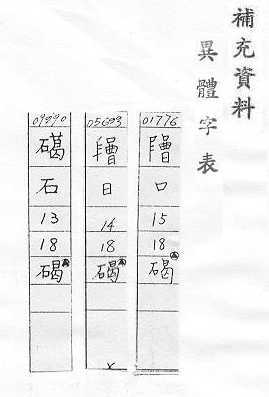 補充資料
異體字表
01776
口
15
18
碣
05693
日
14
18
碣
09990
石
13
18
碣